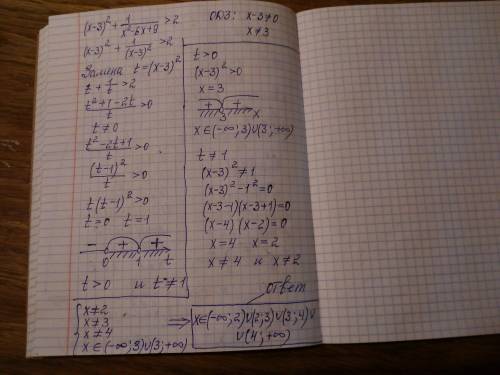 (x-3)² + 1/(x²-6x+9) > 2
(x-3)² + 1/(x-3)² > 2
Замена t=(x-3)²
t + 1/t > 2
(t²+1-2t)/t > 0
t ≠ 0
(t²-2t+1)/t > 0
(t-1)²/t > 0
t(t-1)² > 0
t=0 t=1
- + +
0 1 t
t > 0 и t ≠ 1
ОДЗ: x-3≠0
x≠3
t > 0
(x-3)² > 0
x = 3
+ +
3 x
x∈(-∞; 3)∪(3; +∞)
t ≠ 1
(x-3)² ≠ 1
(x-3)² - 1² = 0
(x-3-1)(x-3+1)=0
(x-4) (x-2) = 0
x = 4 x = 2
x ≠ 4 и x ≠ 2
ответ
{ x≠2
x≠3
x≠4
x∈(-∞; 3)∪(3; +∞)
⇒ x∈(-∞; 2)∪(2; 3)∪(3; 4)∪
∪(4; +∞)